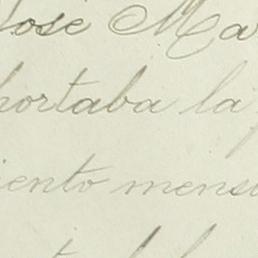 José Ma
portaba la
iento mens